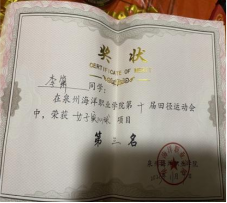 奖状
CERTIFICATE OF MERIT
李 同学:
在泉州海洋职业学院第十届田径运动会
中，荣获 女子 项目
第三名